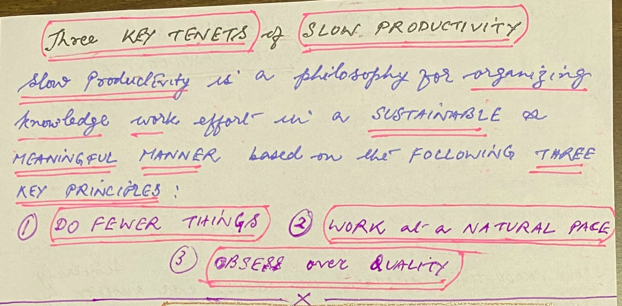 Three KEY TENETS of SLOW PRODUCTIVITY
Slow Productivity is a philosophy for organizing
knowledge work effort in a SUSTAINABLE &
MEANINGFUL MANNER based on the FOLLOWING THREE
KEY PRINCIPLES :
① DO FEWER THINGS ② WORK at a NATURAL PACE
③ OBSESS over QUALITY
X